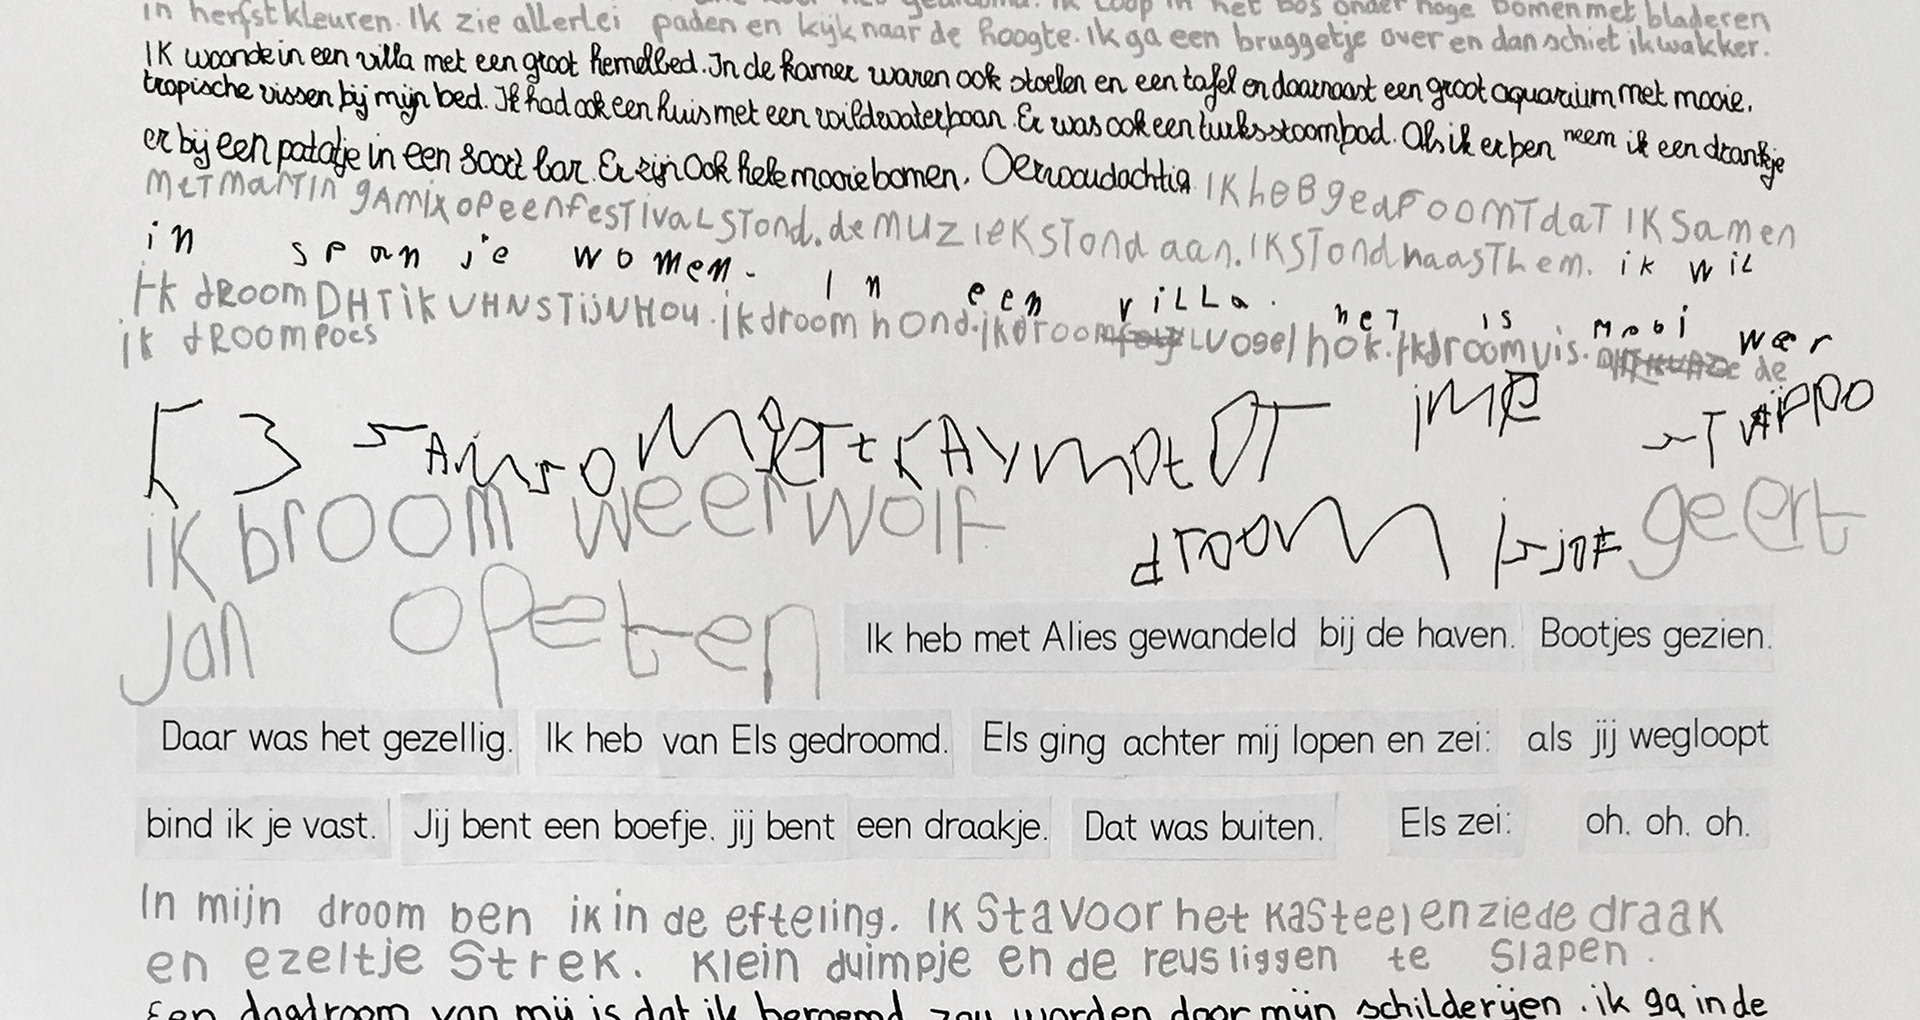 in herfstkleuren. Ik zie allerlei paden en kijk naar de hoogte. ik ga een bruggetje over en dan schiet ik wakker.
IK woonde in een villa met een groot hemelbed. In de kamer waren ook stoelen en een tafel en daarnaast een groot aquarium met mooie.
tropische vissen bij mijn bed. Ik had ook een huis met een wildwaterbaan. Er was ook een turks stoombad. Als ik er ben neem ik een drankje
er bij een patatje in een soort bar. Er zijn ook hele mooie bomen. Oerwoudachtig IK heB gedrooMT daT IK Samen
MeT MarTIN gAmix op een fesTivaL STond. de MUZIEK STond aan. IK STond naasT hem. ik wil
in spanje women. In een villa. het is mooi wer
ik dRoom DHT ik VHN STijN HOU. ik droom hond. ik droom vogel hok. ik droom vis. de
ik dRoom poes
ik broom weerwolf geert
droom
Jan opeten Ik heb met Alies gewandeld bij de haven. Bootjes gezien.
Daar was het gezellig. Ik heb van Els gedroomd. Els ging achter mij lopen en zei: als jij wegloopt
bind ik je vast. Jij bent een boefje. jij bent een draakje. Dat was buiten. Els zei: oh. oh. oh.
In mijn droom ben ik in de efteling. IK Sta voor het kasteel en zie de draak
en ezeltje Strek. Klein duimpje en de reus liggen te Slapen.
Een dagdroom van mij is dat ik beroemd zou worden door mijn schilderijen. ik ga in de